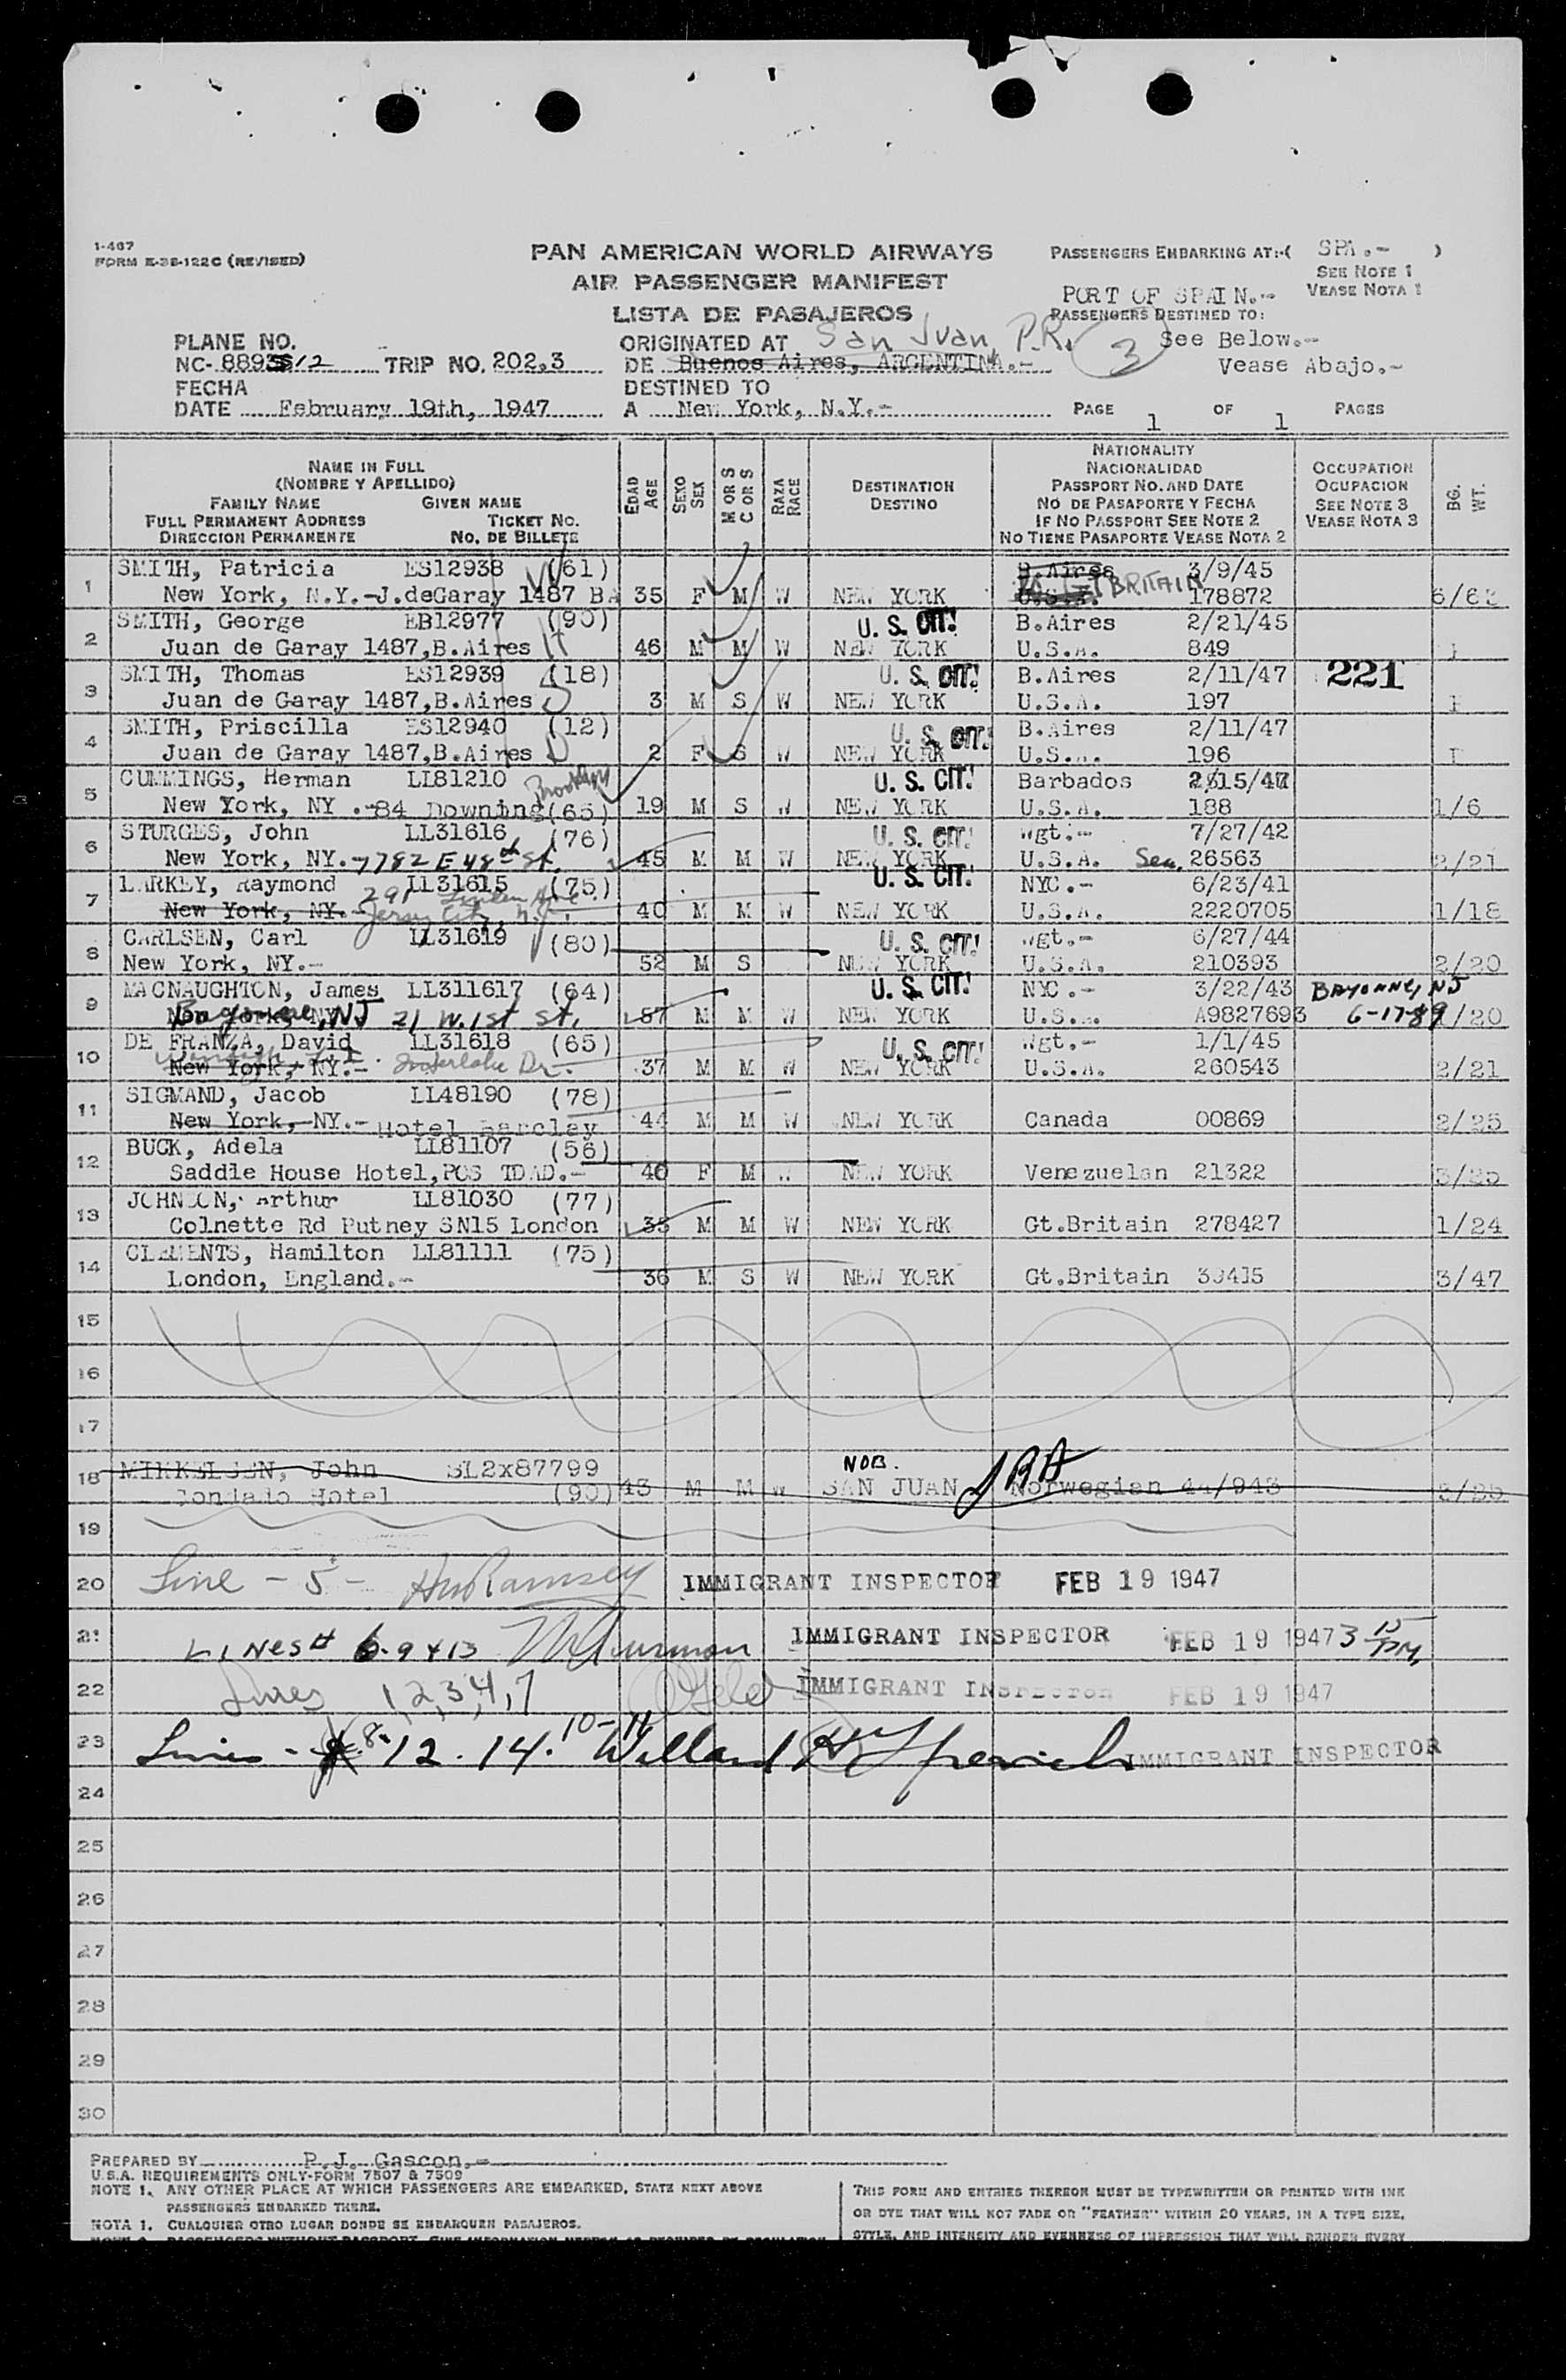 1-467
FORM E-38-122C (REVISED)
PAN AMERICAN WORLD AIRWAYS
AIR PASSENGER MANIFEST
LISTA DE PASAJEROS
PASSENGERS EMBARKING AT:-( SPA.- )
SEE NOTE 1
VEASE NOTA 1
PORT OF SPAIN.--
PASSENGERS DESTINED TO:
See Below.--
Vease Abajo.-
PLANE NO.
NC- 889 12 TRIP NO. 202.3
FECHA
DATE February 19th, 1947
ORIGINATED AT San Juan, P.R. 3
DE Buenos Aires, ARGENTINA.-
DESTINED TO
A New York, N.Y.-
PAGE 1 OF 1 PAGES
NAME IN FULL
(NOMBRE Y APELLIDO)
FAMILY NAME GIVEN NAME
FULL PERMANENT ADDRESS TICKET NO.
DIRECCION PERMANENTE NO. DE BILLETE
EDAD AGE
SEXO SEX
M OR S C OR S
RAZA RACE
DESTINATION
DESTINO
NATIONALITY
NACIONALIDAD
PASSPORT NO. AND DATE
NO DE PASAPORTE Y FECHA
IF NO PASSPORT SEE NOTE 2
NO TIENE PASAPORTE VEASE NOTA 2
OCCUPATION
OCUPACION
SEE NOTE 3
VEASE NOTA 3
BG. WT.
SMITH, Patricia ES12938 (61) B.Aires 3/9/45
1 New York, N.Y.-J.deGaray 1487 BA 35 F M W NEW YORK GT BRITAIN 178872
SMITH, George EB12977 (90) U. S. CIT! B.Aires 2/21/45
2 Juan de Garay 1487,B.Aires 46 M M W NEW YORK U.S.A. 849
SMITH, Thomas ES12939 (18) U. S. CIT! B.Aires 2/11/47 221
3 Juan de Garay 1487,B.Aires 3 M S W NEW YORK U.S.A. 197
SMITH, Priscilla ES12940 (12) U. S. CIT! B.Aires 2/11/47
4 Juan de Garay 1487,B.Aires 2 F S W NEW YORK U.S.A. 196
CUMMINGS, Herman LL81210 Brooklyn U. S. CIT! Barbados 2/15/47
5 New York, NY .-84 Downing (65) 19 M S W NEW YORK U.S.A. 188 1/6
STURGES, John LL31616 (76) U. S. CIT! Wgt.-- 7/27/42
6 New York, NY.-782 E 48th St. 45 M M W NEW YORK U.S.A. Sea. 26563 2/21
LARKEY, Raymond LL31615 (75) 291 Linden Ave. U. S. CIT! NYC.- 6/23/41
7 New York, NY.- Jersey City, N.J. 40 M M W NEW YORK U.S.A. 2220705 1/18
CARLSEN, Carl LL31619 (80) U. S. CIT! Wgt.- 6/27/44
8 New York, NY.- 52 M S NEW YORK U.S.A. 210393 2/20
MACNAUGHTON, James LL311617 (64) U. S. CIT! NYC.- 3/22/43 BAYONNE, NJ
9 Bayonne, NJ 21 W. 1st St, 57 M M W NEW YORK U.S.A. A9827693 6-17-89 /20
DE FRANZA, David LL31618 (65) U. S. CIT! Wgt.- 1/1/45
10 New York, NY.- Interlake Dr. 37 M M W NEW YORK U.S.A. 260543 2/21
SIGMAND, Jacob LL48190 (78)
11 New York, NY.- Hotel Barclay 44 M M W NEW YORK Canada 00869 2/25
BUCK, Adela LL81107 (56)
12 Saddle House Hotel,POS TDAD.- 40 F M W NEW YORK Venezuelan 21322 3/25
JOHNSON, Arthur LL81030 (77)
13 Colnette Rd Putney SN15 London 35 M M W NEW YORK Gt.Britain 278427 1/24
CLEMENTS, Hamilton LL81111 (75)
14 London, England.- 36 M S W NEW YORK Gt.Britain 39415 3/47
15
16
17
18 MIKKELSEN, John SL2x87799 NOB.
Condado Hotel (90) 43 M M W SAN JUAN Norwegian 44/943 3/25
19
20 Line - 5 - Ramsey IMMIGRANT INSPECTOR FEB 19 1947
21 LINES # 6-9 & 13 IMMIGRANT INSPECTOR FEB 19 1947 3 15 PM,
22 Lines 1,2,3,4,7 IMMIGRANT INSPECTOR FEB 19 1947
23 Lines - 8-12.14. 10-11 Willard IMMIGRANT INSPECTOR
24
25
26
27
28
29
30
PREPARED BY P.J. Gascon.-
U.S.A. REQUIREMENTS ONLY-FORM 7507 & 7509
NOTE 1. ANY OTHER PLACE AT WHICH PASSENGERS ARE EMBARKED, STATE NEXT ABOVE
PASSENGERS EMBARKED THERE.
NOTA 1. CUALQUIER OTRO LUGAR DONDE SE EMBARQUEN PASAJEROS.
THIS FORM AND ENTRIES THEREON MUST BE TYPEWRITTEN OR PRINTED WITH INK
OR DYE THAT WILL NOT FADE OR "FEATHER" WITHIN 20 YEARS, IN A TYPE SIZE,
STYLE, AND INTENSITY AND EVENNESS OF IMPRESSION THAT WILL RENDER EVERY